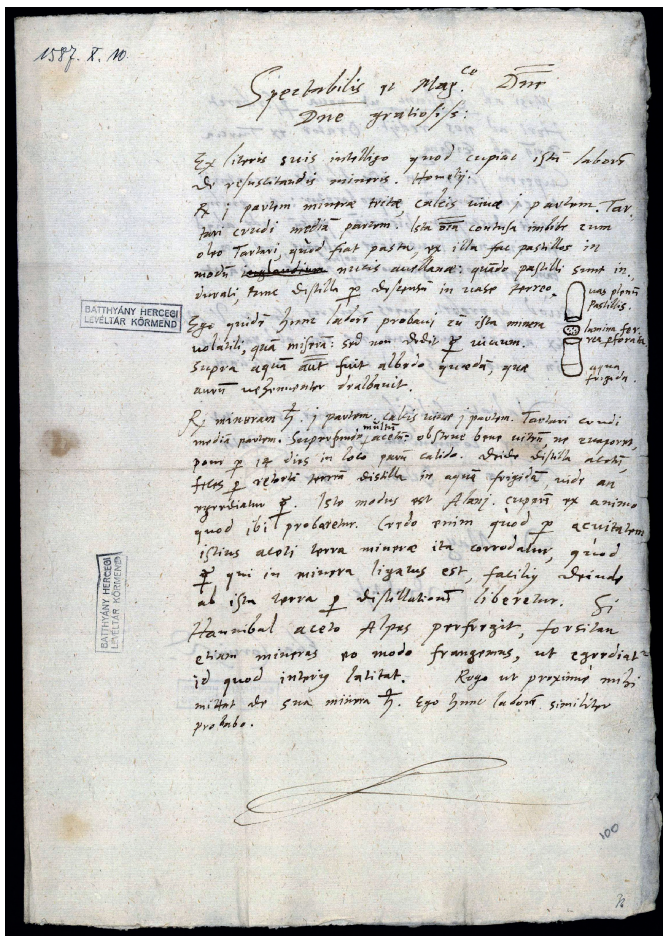 1587. X. 10.
Spectabilis et Mag.ce Dne
Dne gratiosiss:
Ex literis suis intelligo quod cupiat istũ laborẽ
de resuscitandis mineris. Homelj:
R j partem mineræ tritæ, calcis uiuæ j partem. Tar-
tari crudi mediã partem. Ista oĩa contusa imbibe cum
oleo Tartari, quod fiat pasta, ex illa fac pastillos in
modũ nucis auellanæ: quãdo pastilli sunt in-
durati, tunc distilla p descensũ in uase terreo.
uas plenũ
Pastillis.
lamina fer-
rea pforata
aqua
frigida.
BATTHYÁNY HERCEGI
LEVÉLTÁR KÖRMEND
Ego quidẽ hunc laborẽ probaui cũ ista minera
uolatili, quã miserã: sed non dedit ☿ uiuum.
Supra aquã aũt fuit albedo quædã, quæ
aurum uehementer dealbauit.
R mineram ♄. j partem. calcis uiuæ j partem. Tartari crudi
media partem. Superfunde multũ acetũ: obstrue bene uitrũ, ne euaporet,
pone p 14 dies in loco parũ calido. deinde distilla acetũ,
feces p retortã terreã distilla in aquã frigidã, uide an
egrediatur ☿. Iste modus est Alanj. cuperẽ ex animo
quod ibi probaretur. Credo enim quod p acuitatem
istius aceti terra mineræ ita corrodatur, quod
☿ qui in minera ligatus est, facilius deinde
ab ista terra p distillationẽ liberetur. Si
Hannibal aceto Alpes perfregit, forsitan
etiam mineras eo modo frangemus, ut egrediatr
id quod interius latitat. Rogo ut proxime mihi
mittat de sua minera ♄. Ego hunc laborẽ similiter
probabo.
BATTHYÁNY HERCEGI
LEVÉLTÁR KÖRMEND
100